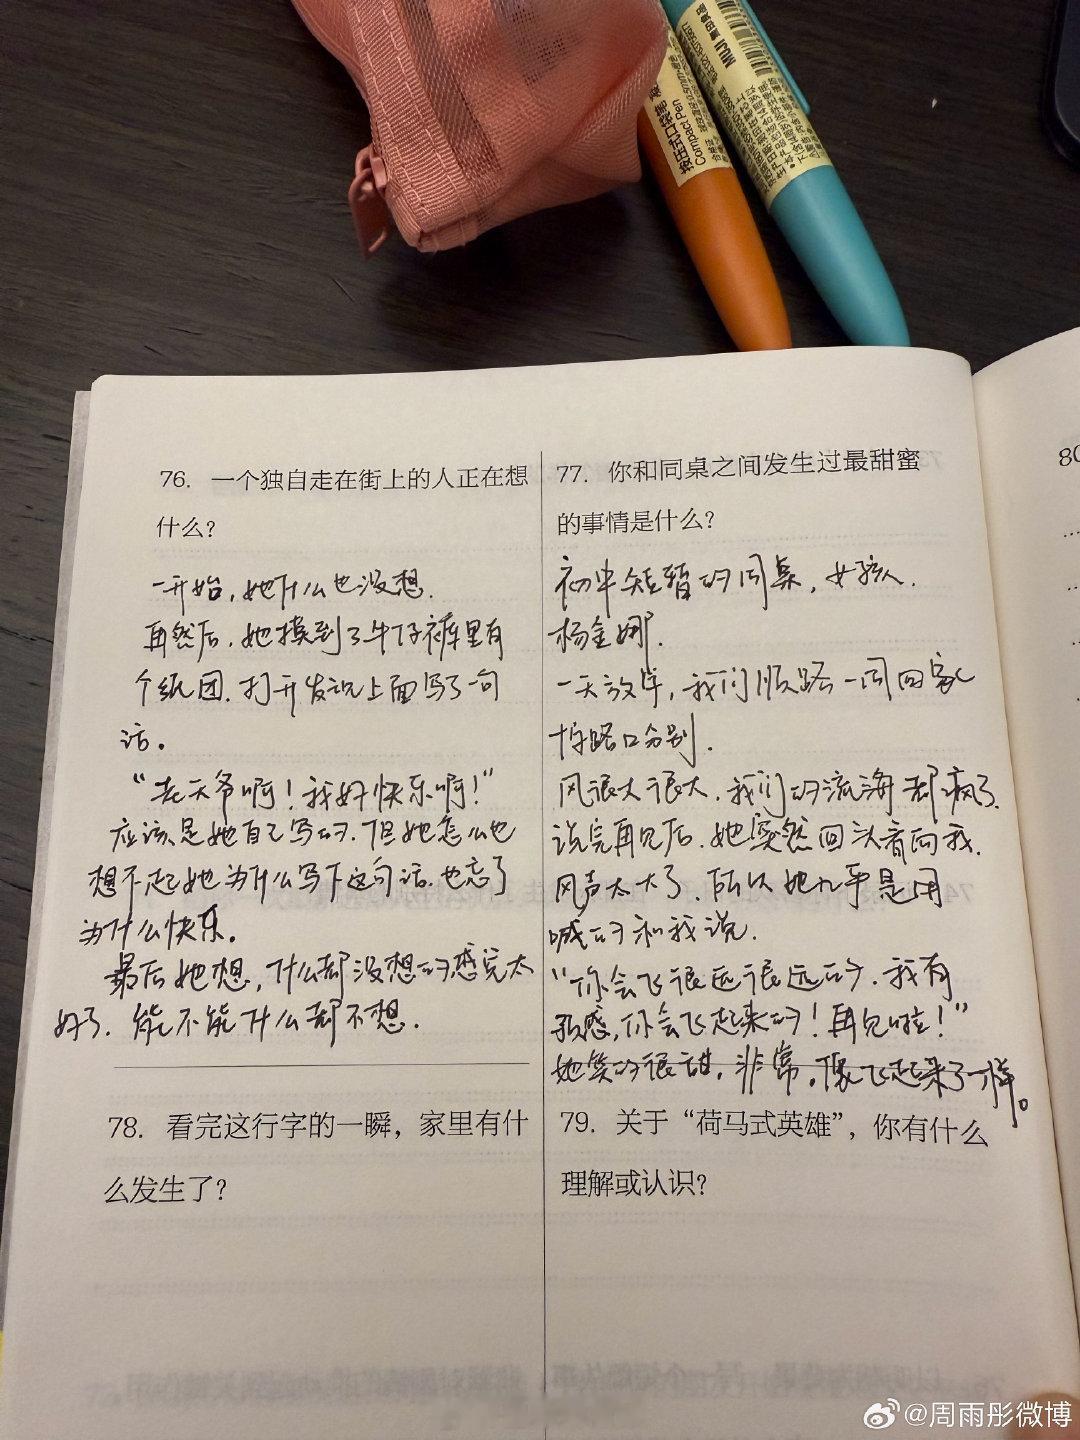 MUJI 無印良品
按压式口袋笔
Compact Pen
76. 一个独自走在街上的人正在想
什么？
一开始，她什么也没想.
再然后，她摸到了牛仔裤里有
个纸团. 打开发现上面写了一句
话。
“老天爷啊！我好快乐啊！”
应该是她自己写的. 但她怎么也
想不起她为什么写下这句话. 也忘了
为什么快乐。
最后她想，什么都没想的感觉太
好了. 能不能什么都不想.
77. 你和同桌之间发生过最甜蜜
的事情是什么？
初中短暂的同桌，女孩人.
杨金娜.
一天放学，我们顺路一同回家
十字路口分别.
风很大很大. 我们的流海都疯了.
说完再见后. 她突然回头看向我.
风声太大了. 所以她几乎是用
喊的和我说.
“你会飞很远很远的. 我有
预感，你会飞起来的！再见啦！”
她笑的很甜，非常，像飞起来了一样。
78. 看完这行字的一瞬，家里有什
么发生了？
79. 关于“荷马式英雄”，你有什么
理解或认识？
80
@周雨彤微博